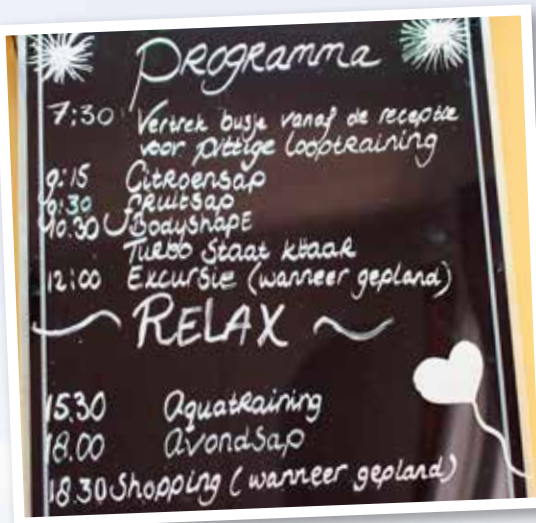 Programma
7:30 Vertrek busje vanaf de receptie
voor pittige looptraining
9:15 Citroensap
9:30 Fruitsap
10.30 Bodyshape
Turbo staat klaar
12:00 Excursie (wanneer gepland)
RELAX
15.30 Aquatraining
18.00 Avondsap
18.30 Shopping (wanneer gepland)